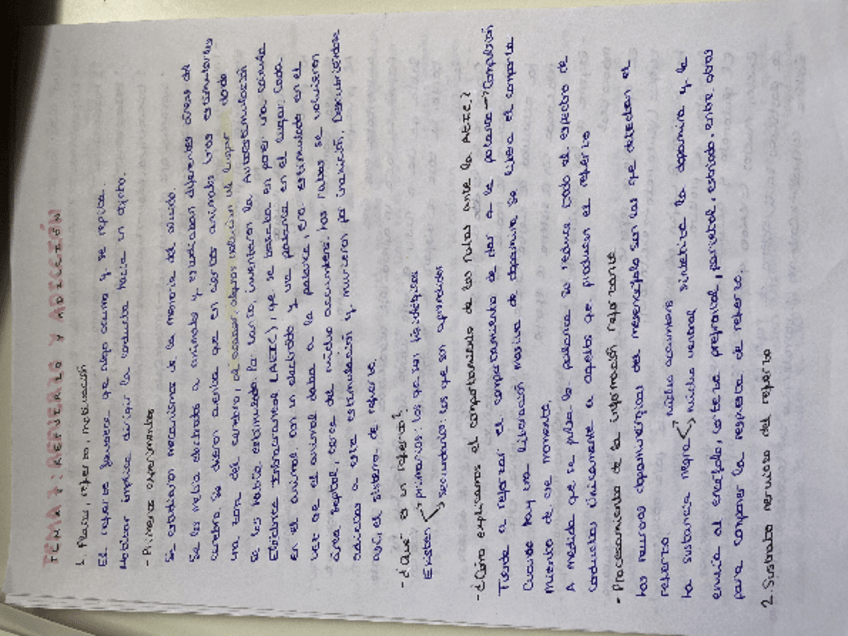 TEMA 7: REFUERZO Y ADICCIÓN
1. Placer, refuerzo, motivación
El refuerzo favorece que algo ocurra y se repita.
Motivar implica dirigir la conducta hacia un objeto.
- Primeros experimentos
Se estudiaron mecanismos de la memoria del miedo.
Se les metía electrodos a animales y estudiaban diferentes áreas del
cerebro. Se dieron cuenta que en ciertos animales tras estimularles
una zona del cerebro, al acabar, volvían al lugar donde
se les había estimulado. Por tanto, inventaron la Autoestimulación
Eléctrica Intracraneal (AEIC), que se basaba en poner una
en el animal con un electrodo y una palanca en el lugar. Cada
vez que el animal daba a la palanca, era estimulado en el
área septal, cerca del núcleo accumbens. Las ratas se volvieron
adictas a esta estimulación y murieron por inanición. Descubriéndose
así, el sistema de refuerzo.
- ¿Qué es un refuerzo?
Existen primarios: los que son
secundarios: los que son aprendidos
- ¿Cómo explicamos el comportamiento de las ratas ante la AEIC?
Tiende a reforzar el comportamiento de dar a la palanca → Compulsión
Cuando hay una liberación masiva de dopamina se libera el comporta
miento de ese momento.
A medida que se pulsa la palanca se reduce todo el espectro de
conductas únicamente a aquellas que producen el refuerzo
- Procesamiento de la información reforzante
Las neuronas dopaminérgicas del mesencéfalo son las que detectan el
refuerzo
núcleo accumbens
La sustancia negra núcleo ventral sintetiza la dopamina y la
envía al encéfalo, corteza prefrontal, parietal, estriado, entre otras
para componer la respuesta de refuerzo.
2. Sustrato nervioso del refuerzo